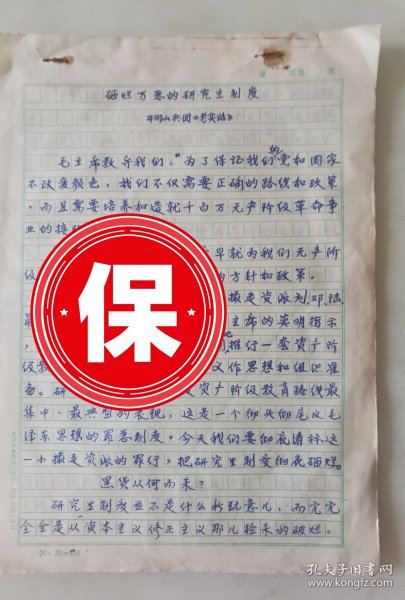 第 页共 页
砸烂万恶的研究生制度
井冈山兵团《老实话》
毛主席教导我们:“为了保证我们的党和国家
不改变颜色,我们不仅需要正确的路线和政策
,而且需要培养和造就千百万无产阶级革命事
业的接
早就为我们无产阶
级
方针和政策。
撮走资派刘邓陆
主席的英明指示
,
推行一套资产阶
级
义作思想和组织准
备。研
资产阶级教育路线最
集中、最典型的表现,这是一个彻头彻尾反毛
泽东思想的罪恶制度。今天我们要彻底清算这
一小撮走资派的罪行,把研究生制度彻底砸烂。
黑货从何而来?
研究生制度并不是什么新玩意儿,而完完
全全是从资本主义修正主义那儿捡来的破烂。
保
20×20=400
孔夫子旧书网
www.kongfz.com